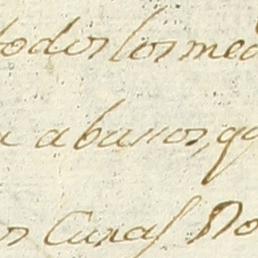 todos los med
a abusos, q
os Curas No